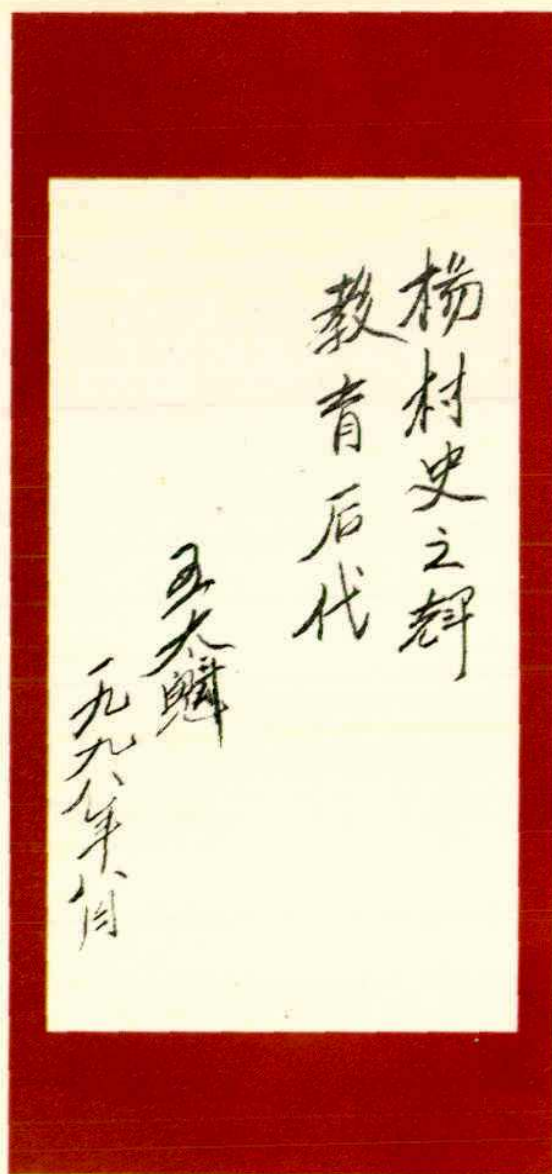 楊村史之辉
教育后代
王大
一九九八年八月